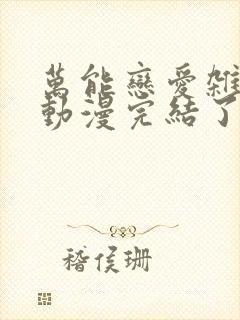 萬能戀愛雜
動漫完結了
稽侯珊